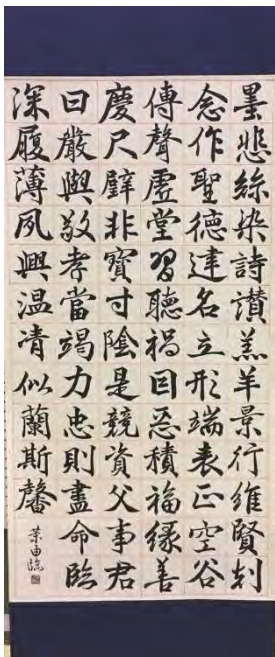 墨悲絲染詩讃羔羊景行維賢剋
念作聖德建名立形端表正空谷
傳聲虛堂習聽禍因惡積福緣善
慶尺璧非寶寸陰是競資父事君
曰嚴與敬孝當竭力忠則盡命臨
深履薄夙興温凊似蘭斯馨